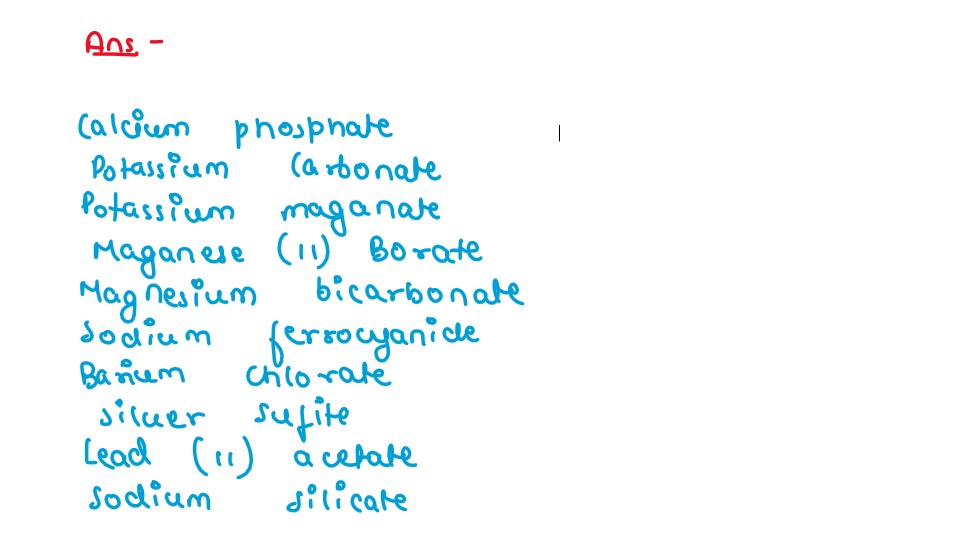 Ans -
Calcium phosphate
Potassium Carbonate
Potassium maganate
Maganese (II) Borate
Magnesium bicarbonate
Sodium ferrocyanide
Barium chlorate
silver sufite
Lead (II) acetate
Sodium silicate